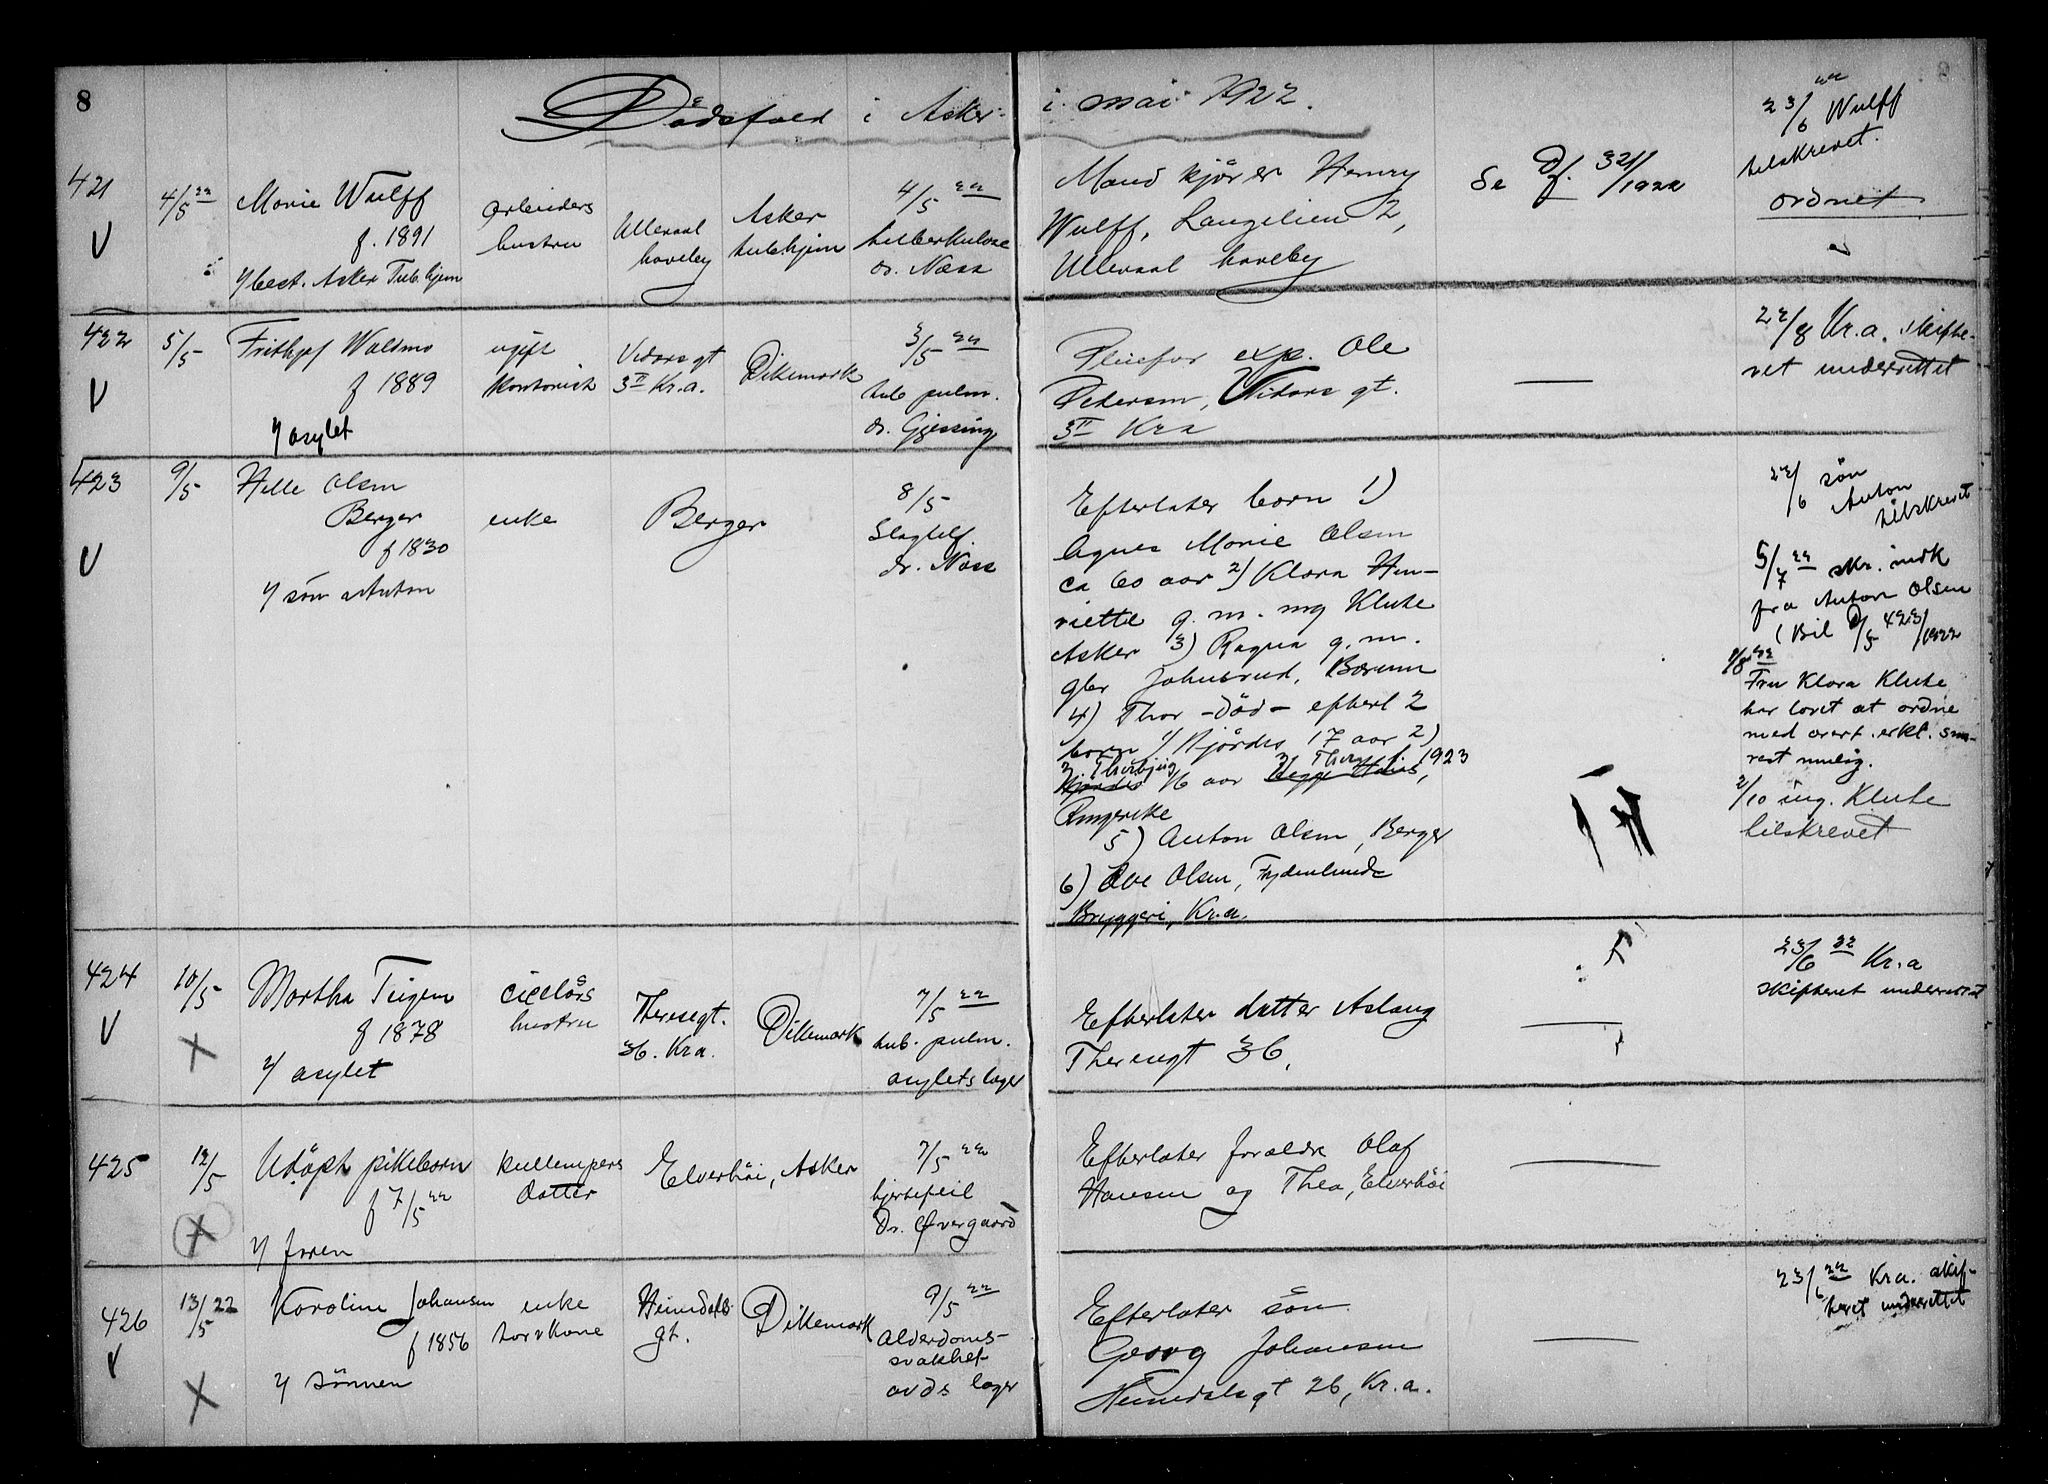 8
Dödsfald i Asker i mai 1922.
421
4/5 22
Marie Wulff
f. 1891
v/ best. Asker Tub.hjem
arbeiders
hustru
Ullevaal
haveby
Asker
tub.hjem
4/5 22
tuberkulose
dr. Næss
Mand kjører Henry
Wulff, 2,
Ullevaal haveby
Se Df. 321/1922
23/6 22 Wulff
tilskrevet.
ordnet
V
422
5/5
Frithjof Waldmo
f 1889
v/ asylet
ugift
kontorist
Vidars gt
3 II Kr.a.
Dikemark
3/5 22
tub. pulm.
dr. Gjessing
Pleiefar exp. Ole
Pedersen, Vidars gt.
3 II Kra
—
22/8 Kr.a. skifte-
ret underrettet
V
423
9/5
Helle Olsen
Berger
f 1830
v/ søn Anton
enke
Berger
8/5
Slagtilf.
dr. Næss
Efterlater børn 1)
Agnes Marie Olsen
ca 60 aar 2) Klara Hen-
riette g. m. ing Klute
Asker 3) Ragna g. m.
gbr Johnsrud, Bærum
4) Thor - död - efterl 2
børn 1/ Hjördis 17 aar 2)
2 Thorbjörg 16 aar 3, Thor f. 1923
Ringerike
5) Anton Olsen, Berger
6) Ole Olsen, Frydenlunds
Bryggeri, Kr.a.
22/6 søn
Anton
tilskrevet
5/7 22 skr. indk
fra Anton Olsen
(Bil D/5 423/1922
1/8 22
Fru Klara Klute
har lovet at ordne
med overt. erkl. sna-
rest mulig.
2/10 ing. Klute
tilskrevet
V
424
10/5
Martha Teigen
f 1878
v/ asylet
ciselörs
hustru
Theresegt.
36. Kra.
Dikemark
7/5 22
tub. pulm.
asylets læge
Efterlater datter Aslaug
Theresegt 36.
—
23/6 22 Kr.a
skifteret underrettet
V
X
425
12/5
Udöpt pikebarn
f 7/5 22
v/ faren
pullempers
datter
Elverhöi, Asker
7/5 22
hjertefeil
Dr. Øvergaard
Efterlater forældre Olaf
Hansen og Thea, Elverhöi
—
X
426
13/5 22
Karoline Johansen
f 1856
v/ sønnen
enke
torvkone
Heimdals
gt.
Dikemark
9/5 22
Alderdoms-
svakhet
avds læge
Efterlater søn
Georg Johansen
Heimdalsgt 26, Kr.a.
—
23/6 22 Kra. skif-
teret underrettet
V
X